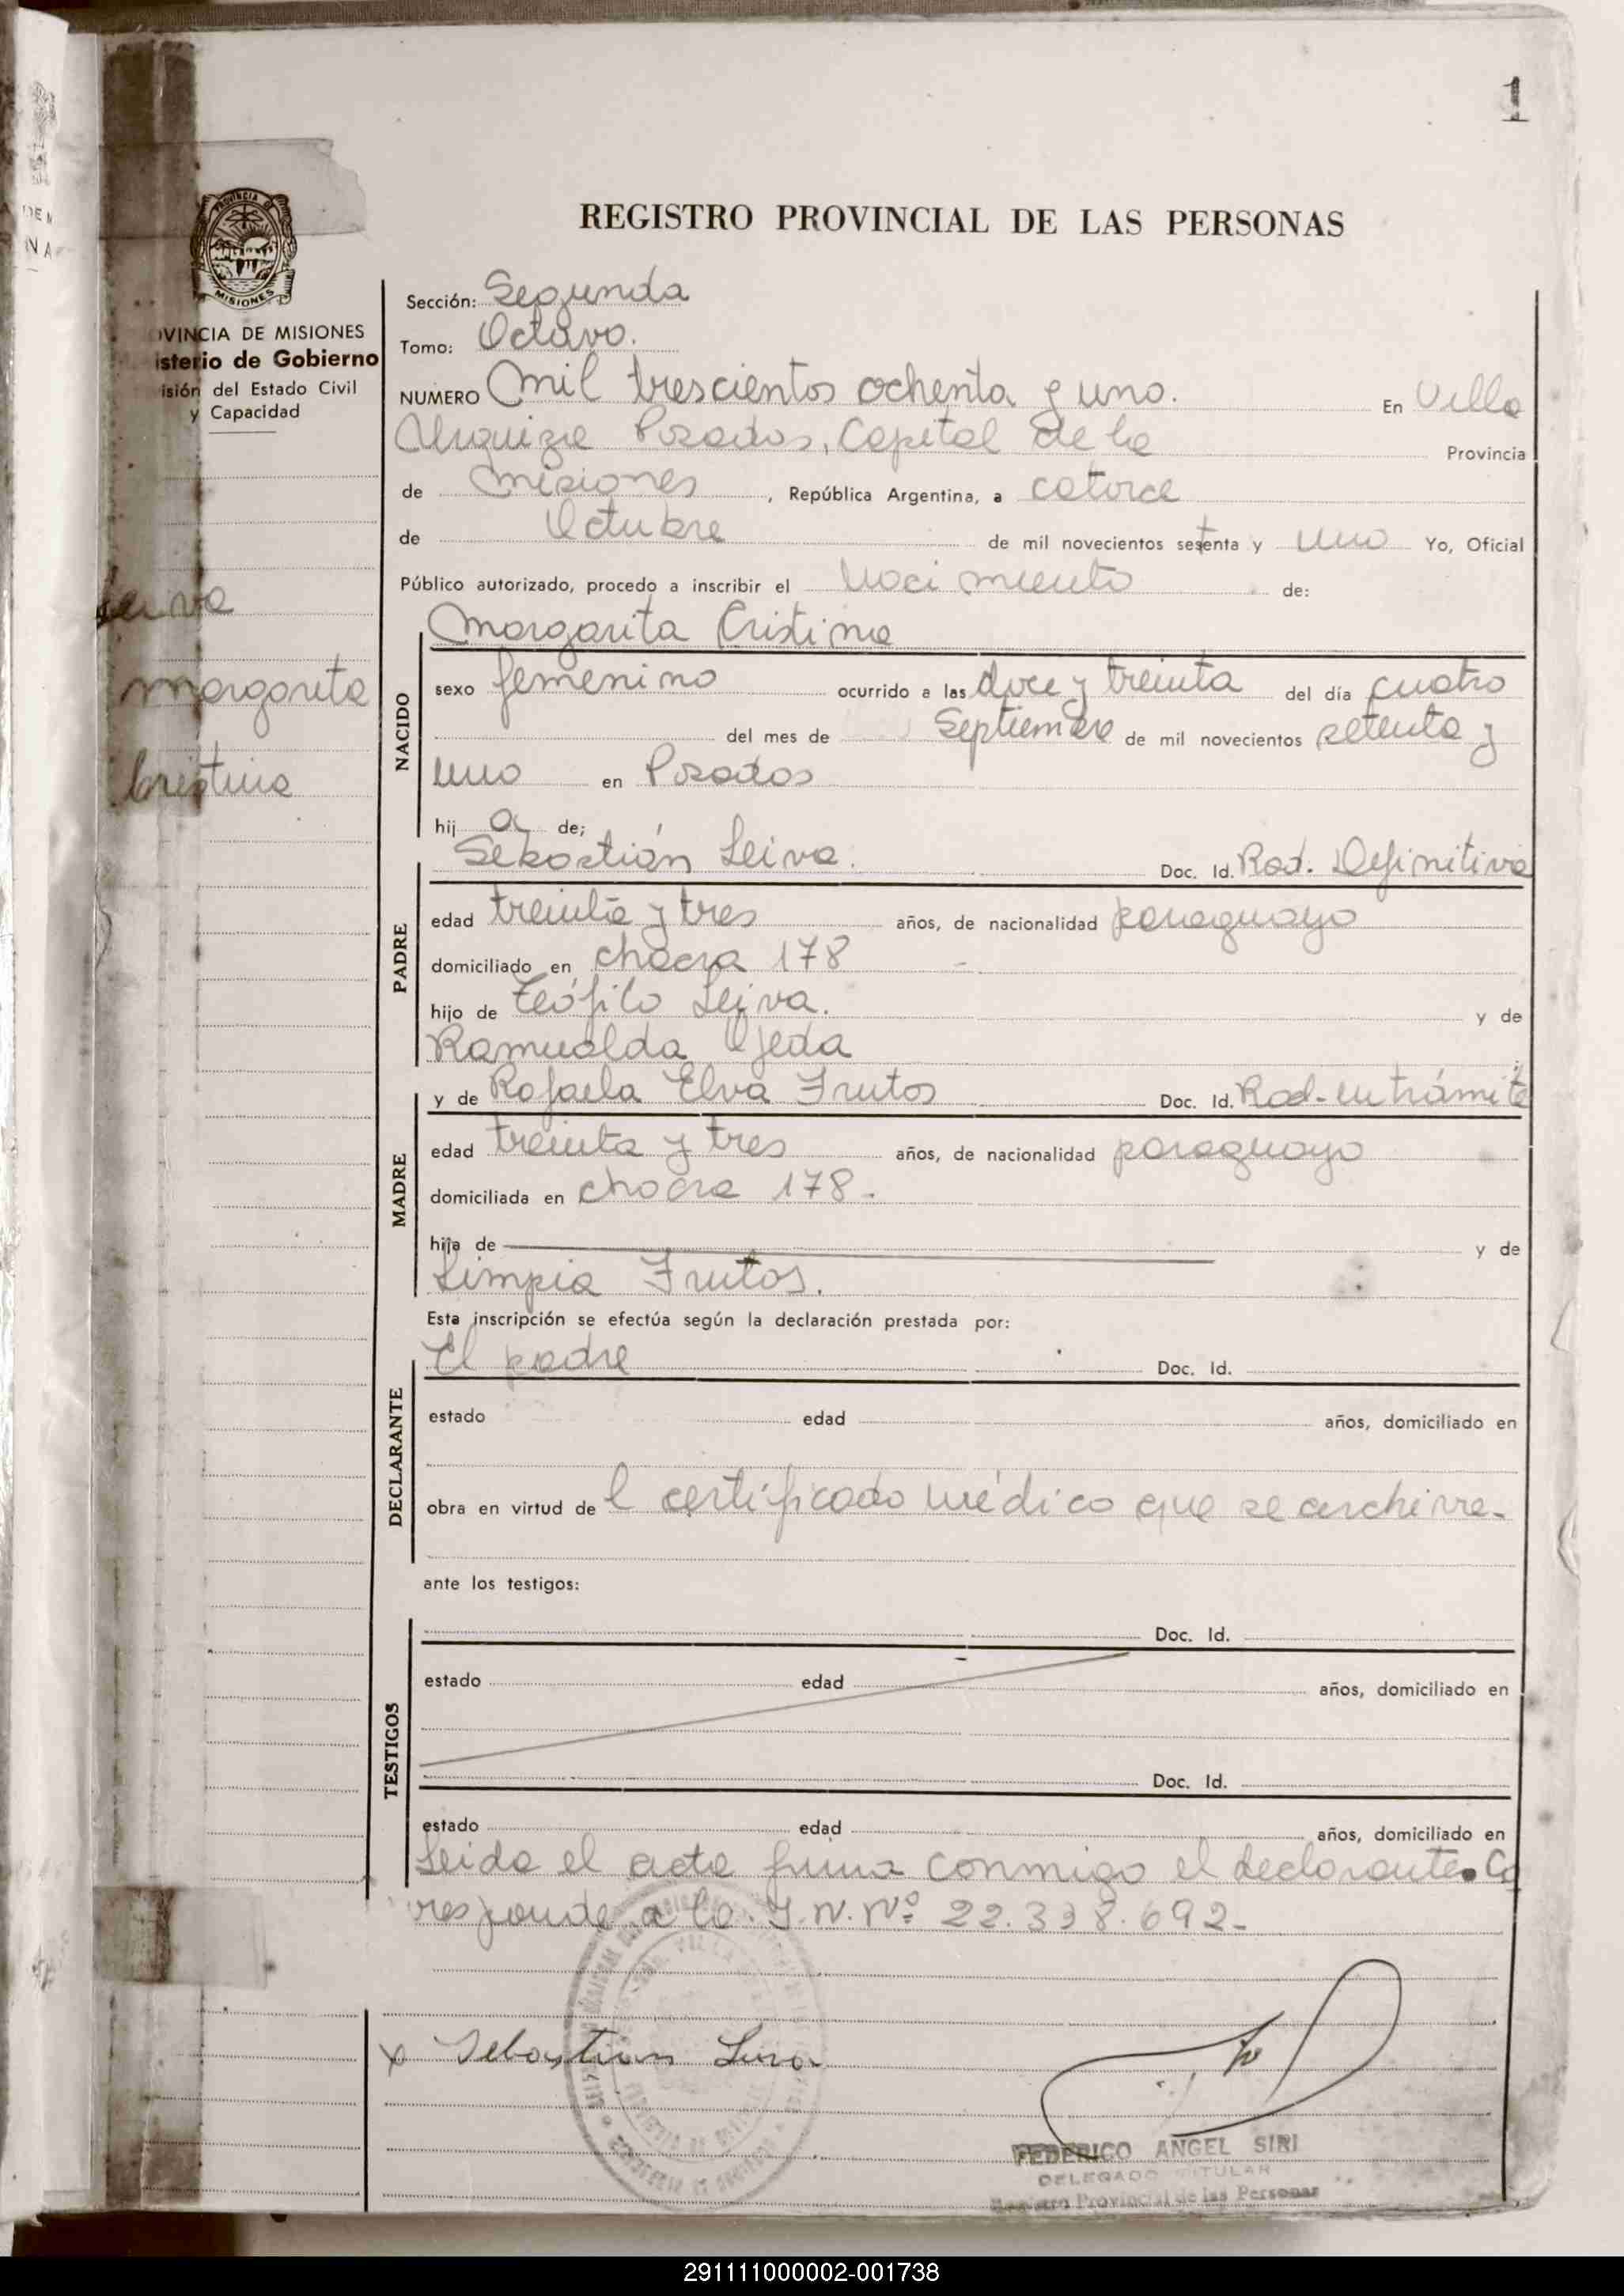 1
REGISTRO PROVINCIAL DE LAS PERSONAS
PROVINCIA DE
MISIONES
OVINCIA DE MISIONES
isterio de Gobierno
isión del Estado Civil
y Capacidad
Sección: Segunda
Tomo: Octavo.
NUMERO Mil trescientos ochenta y uno. En Villa
Urquiza Posadas, Capital de la Provincia
de Misiones, República Argentina, a catorce
de Octubre de mil novecientos setenta y uno Yo, Oficial
Público autorizado, procedo a inscribir el Nacimiento de:
Leiva
Margarita
Cristina
NACIDO
Margarita Cristina
sexo femenino ocurrido a las doce y treinta del día cuatro
del mes de Septiembre de mil novecientos setenta y
uno en Posadas
hij a de;
PADRE
Sebastián Leiva. Doc. Id. Rad. Definitiva
edad treinta y tres años, de nacionalidad paraguayo
domiciliado en chacra 178
hijo de Teófilo Leiva. y de
Ramualda Ojeda
MADRE
y de Rafaela Elva Frutos Doc. Id. Rad. en trámite
edad treinta y tres años, de nacionalidad paraguaya
domiciliada en chacra 178.
hija de y de
Limpia Frutos.
Esta inscripción se efectúa según la declaración prestada por:
DECLARANTE
El padre Doc. Id.
estado edad años, domiciliado en
obra en virtud de l certificado médico que se archiva.
ante los testigos:
TESTIGOS
Doc. Id.
estado edad años, domiciliado en
Doc. Id.
estado edad años, domiciliado en
Leida el acta firma conmigo el declarante. Co
responde a la I.N. Nº 22.338.692-
x Sebastian Leiva
FEDERICO ANGEL SIRI
DELEGADO TITULAR
Registro Provincial de las Personas
291111000002-001738